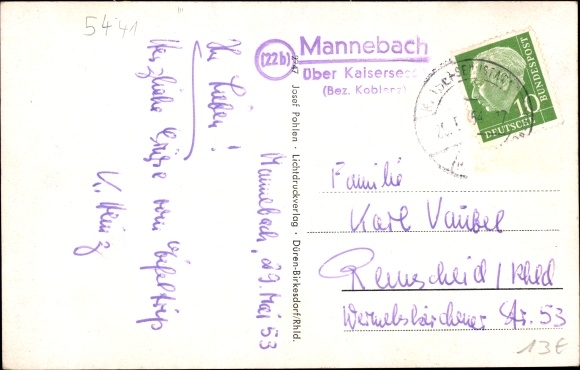 5441
(22b) Mannebach
über Kaisersesch
(Bez. Koblenz)
DEUTSCHE BUNDESPOST
10
Mannebach, 29. Mai 53
Ihr Lieben!
Herzliche Grüße vom Eifeltrip
K. Heinz
2747 Josef Pohlen · Lichtdruckverlag · Düren-Birkesdorf/Rhld.
Familie
Karl Vaubel
Remscheid/Rhld
Wermelskirchener Str. 53
13€